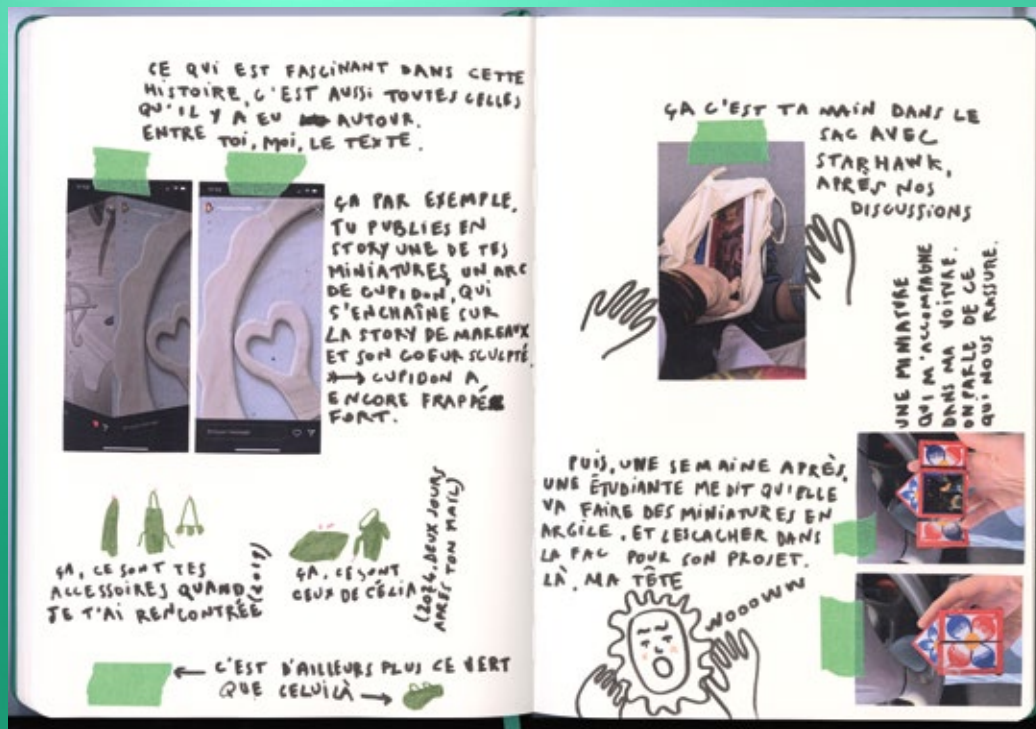 CE QUI EST FASCINANT DANS CETTE
HISTOIRE, C'EST AUSSI TOUTES CELLES
QU'IL Y A EU AUTOUR.
ENTRE TOI, MOI, LE TEXTE.
ÇA PAR EXEMPLE,
TU PUBLIES EN
STORY UNE DE TES
MINIATURES, UN ARC
DE CUPIDON, QUI
S'ENCHAÎNE SUR
LA STORY DE MAREAUX
ET SON COEUR SCULPTÉ.
→ CUPIDON A
ENCORE FRAPPÉ
FORT.
ÇA, CE SONT TES
ACCESSOIRES QUAND
JE T'AI RENCONTRÉE
(2019)
ÇA, CE SONT
CEUX DE CÉLIA
(2024, DEUX JOURS
APRÈS TON MAIL)
← C'EST D'AILLEURS PLUS CE VERT
QUE CELUI LÀ →
ÇA C'EST TA MAIN DANS LE
SAC AVEC
STARHAWK,
APRÈS NOS
DISCUSSIONS
UNE MINIATURE
QUI M'ACCOMPAGNE
DANS MA VOITURE.
ON PARLE DE CE
QUI NOUS RASSURE.
PUIS, UNE SEMAINE APRÈS,
UNE ÉTUDIANTE ME DIT QU'ELLE
VA FAIRE DES MINIATURES EN
ARGILE. ET LES CACHER DANS
LA FAC POUR SON PROJET.
LÀ, MA TÊTE
WOOOWW